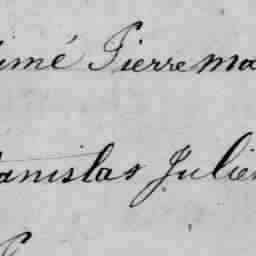 imé Pierre ma
tanislas Julie